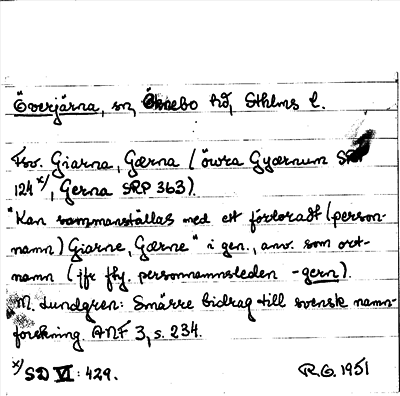 Överjärna, sn, Öknebo hd, Sthlms l.
Fsv. Giarna, Gærna (öwra Gyærnum SRP
124 x/, Gerna SRP 363).
"Kan sammanställas med ett förlorat (person-
namn) Giarne, Gærne" i gen., anv. som ort-
namn (jfr fty. personnamnsleden -gern).
M. Lundgren: Smärre bidrag till svensk namn-
forskning ANF 3, s. 234.
x/ SD VI: 429.
R.G. 1951